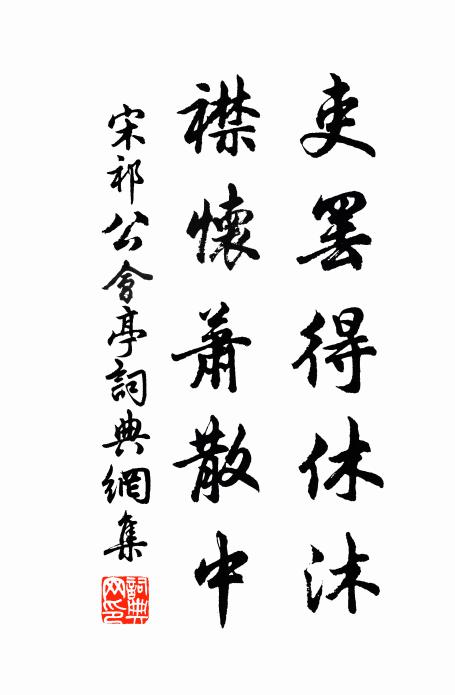 吏罷得休沐
襟懷蕭散中
宋祁公會亭詞典網集
詞典網印